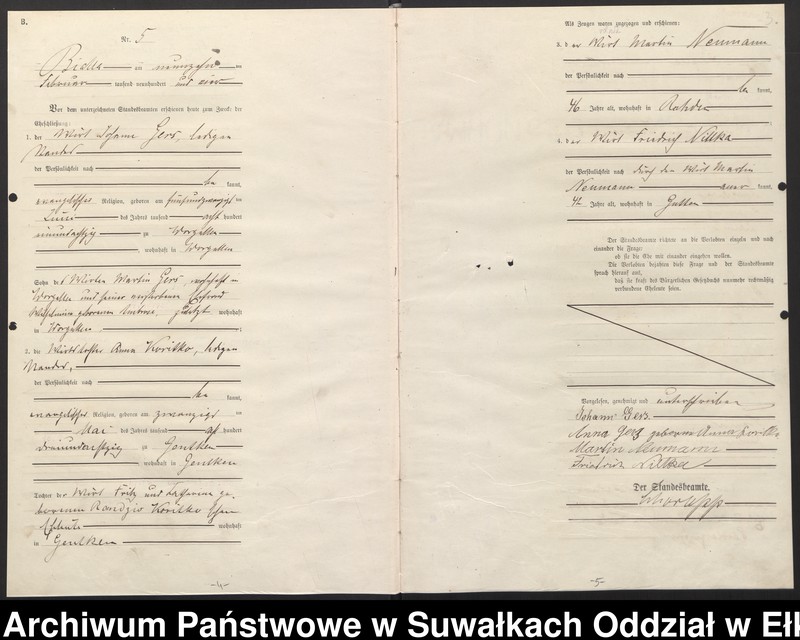 B.
Nr. 5
Bialla am neunzehn ten
Februar tausend neunhundert und vier
Vor dem unterzeichneten Standesbeamten erschienen heute zum Zwecke der
Eheschließung:
1. der Wirt Johann Gers, ledigen
Standes
der Persönlichkeit nach
be kannt,
evangelischer Religion, geboren am fünfundzwanzigs ten
Juni des Jahres tausend acht hundert
neunundachtzig zu Worgullen
, wohnhaft in Worgullen
Sohn des Wirten Martin Gers, wohnhaft in
Worgullen und seiner verstorbenen Ehefrau
Wilhelmine geborenen zuletzt wohnhaft
in Worgullen.
2. die Wirtstochter Anna Koritko, ledigen
Standes,
der Persönlichkeit nach
be kannt,
evangelischer Religion, geboren am zwanzigs ten
Mai des Jahres tausend acht hundert
dreiundachtzig zu Gentken
, wohnhaft in Gentken
Tochter der Wirt Fritz und Catharine ge-
borenen Randzio Koritko schen
Eheleute wohnhaft
in Gentken
-4-
Als Zeugen waren zugezogen und erschienen:
3. der Wirt Martin Neumann
der Persönlichkeit nach
be kannt,
46 Jahre alt, wohnhaft in
4. der Wirt Friedrich Nittka
der Persönlichkeit nach durch den Wirt Martin
Neumann aner kannt,
42 Jahre alt, wohnhaft in Gutten
Der Standesbeamte richtete an die Verlobten einzeln und nach
einander die Frage:
ob sie die Ehe mit einander eingehen wollen.
Die Verlobten bejahten diese Frage und der Standesbeamte
sprach hierauf aus,
daß sie kraft des Bürgerlichen Gesetzbuchs nunmehr rechtmäßig
verbundene Eheleute seien.
Vorgelesen, genehmigt und unterschrieben
Johann Gers.
Anna Gers geborene Anna Koritko
Martin Neumann
Friedrich Nittka
Der Standesbeamte.
-5-
Archiwum Państwowe w Suwałkach Oddział w Eł